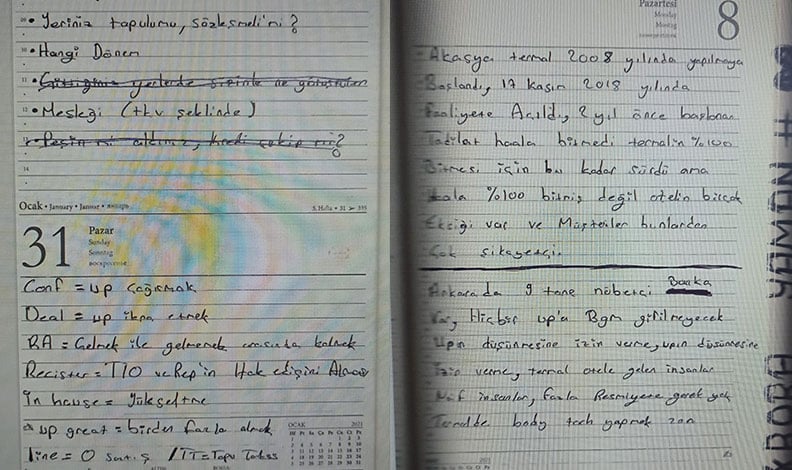 • Yeriniz tapulumu, sözleşmeli'mi?
• Hangi Dönem
• Gittiğiniz yerlerde sizinle ne
• Mesleği (tkv şeklinde)
• Peşin mi aldınız, kredi çekip mi?
14
Ocak • January • Januar • январь
5. Hafta • 31 > 335
31
Pazar
Sunday
Sonntag
воскресенье
Conf = up çağırmak
Deal = up ikna etmek
BA = Gelmek ile gelmemek arasında kalmak
Recister = TIO ve Rep'in Hak edişini
İn hause = Yükseltme
up great = birden fazla almak
line = 0 satış / TT = Tapu
OCAK 2021
Pazartesi
Monday
Montag
8
Akasya termal 2008 yılında yapılmaya
Başlandı, 17 kasım 2018 yılında
Faaliyete Açıldı, 2 yıl önce başlanan
Tadilat haala bitmedi termalin %100
Bitmesi için bu kadar sürdü ama
Hala %100 bitmiş değil otelin birçok
Eksiği var ve Müşteriler bunlardan
Çok şikayetçi.
Ankarada 9 tane nöbetçi Banka
Var, Hiçbir up'a Bgm girilmeyecek
Upın düşünmesine izin verme, upın düşünmesine
İzin verme, termal otele gelen insanlar
insanlar, fazla Resmiyete gerek yok
Termalde body tech yapmak zor
YAMAN #